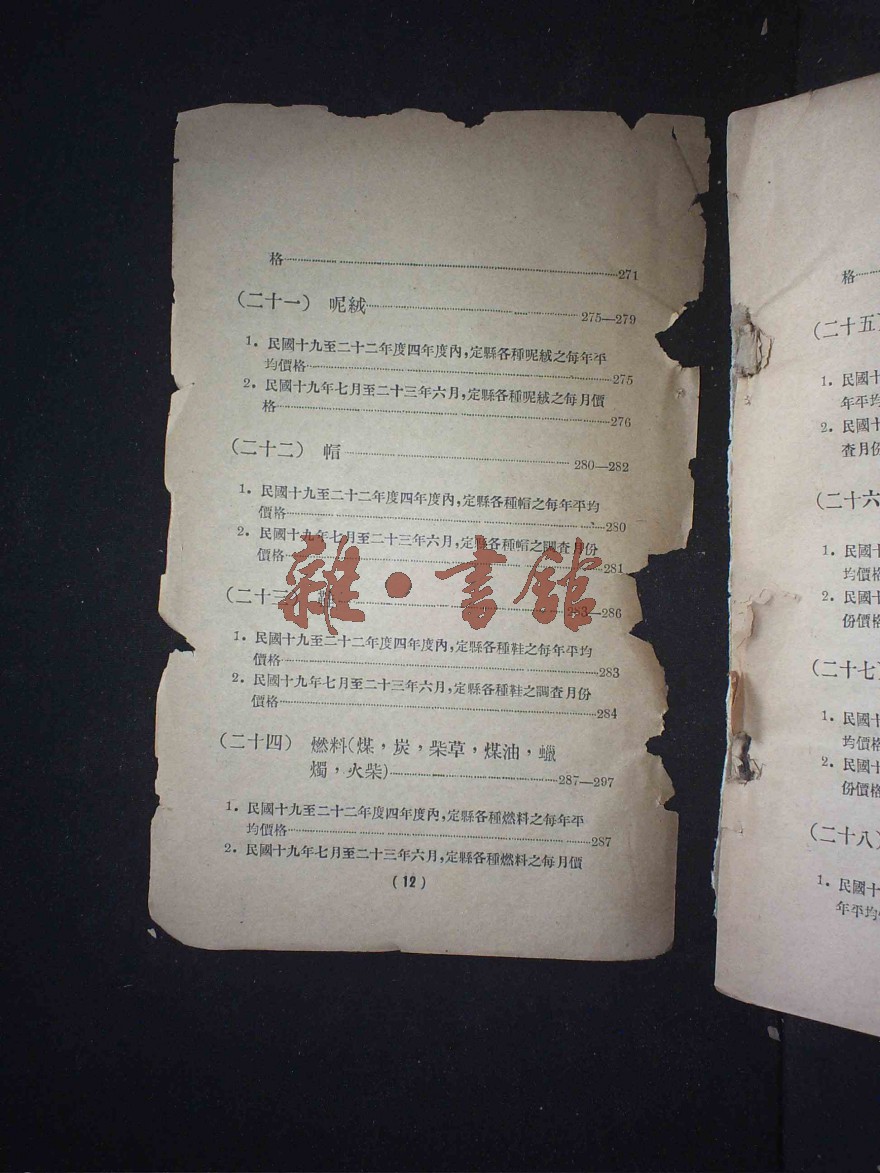 格……271
(二十一) 呢絨……275—279
1. 民國十九至二十二年度四年度內，定縣各種呢絨之每年平
均價格……275
2. 民國十九年七月至二十三年六月，定縣各種呢絨之每月價
格……276
(二十二) 帽……280—282
1. 民國十九至二十二年度四年度內，定縣各種帽之每年平均
價格……280
2. 民國十九年七月至二十三年六月，定縣各種帽之調查月份
價格……281
(二十三)……283—286
1. 民國十九至二十二年度四年度內，定縣各種鞋之每年平均
價格……283
2. 民國十九年七月至二十三年六月，定縣各種鞋之調查月份
價格……284
(二十四) 燃料(煤，炭，柴草，煤油，蠟
燭，火柴)……287—297
1. 民國十九至二十二年度四年度內，定縣各種燃料之每年平
均價格……287
2. 民國十九年七月至二十三年六月，定縣各種燃料之每月價
(12)
雜·書館
格……
(二十五)
1. 民國十
年平均
2. 民國十
查月份
(二十六
1. 民國十
均價格
2. 民國十
份價格
(二十七)
1. 民國十
均價格
2. 民國十
份價格
(二十八)
1. 民國十
年平均